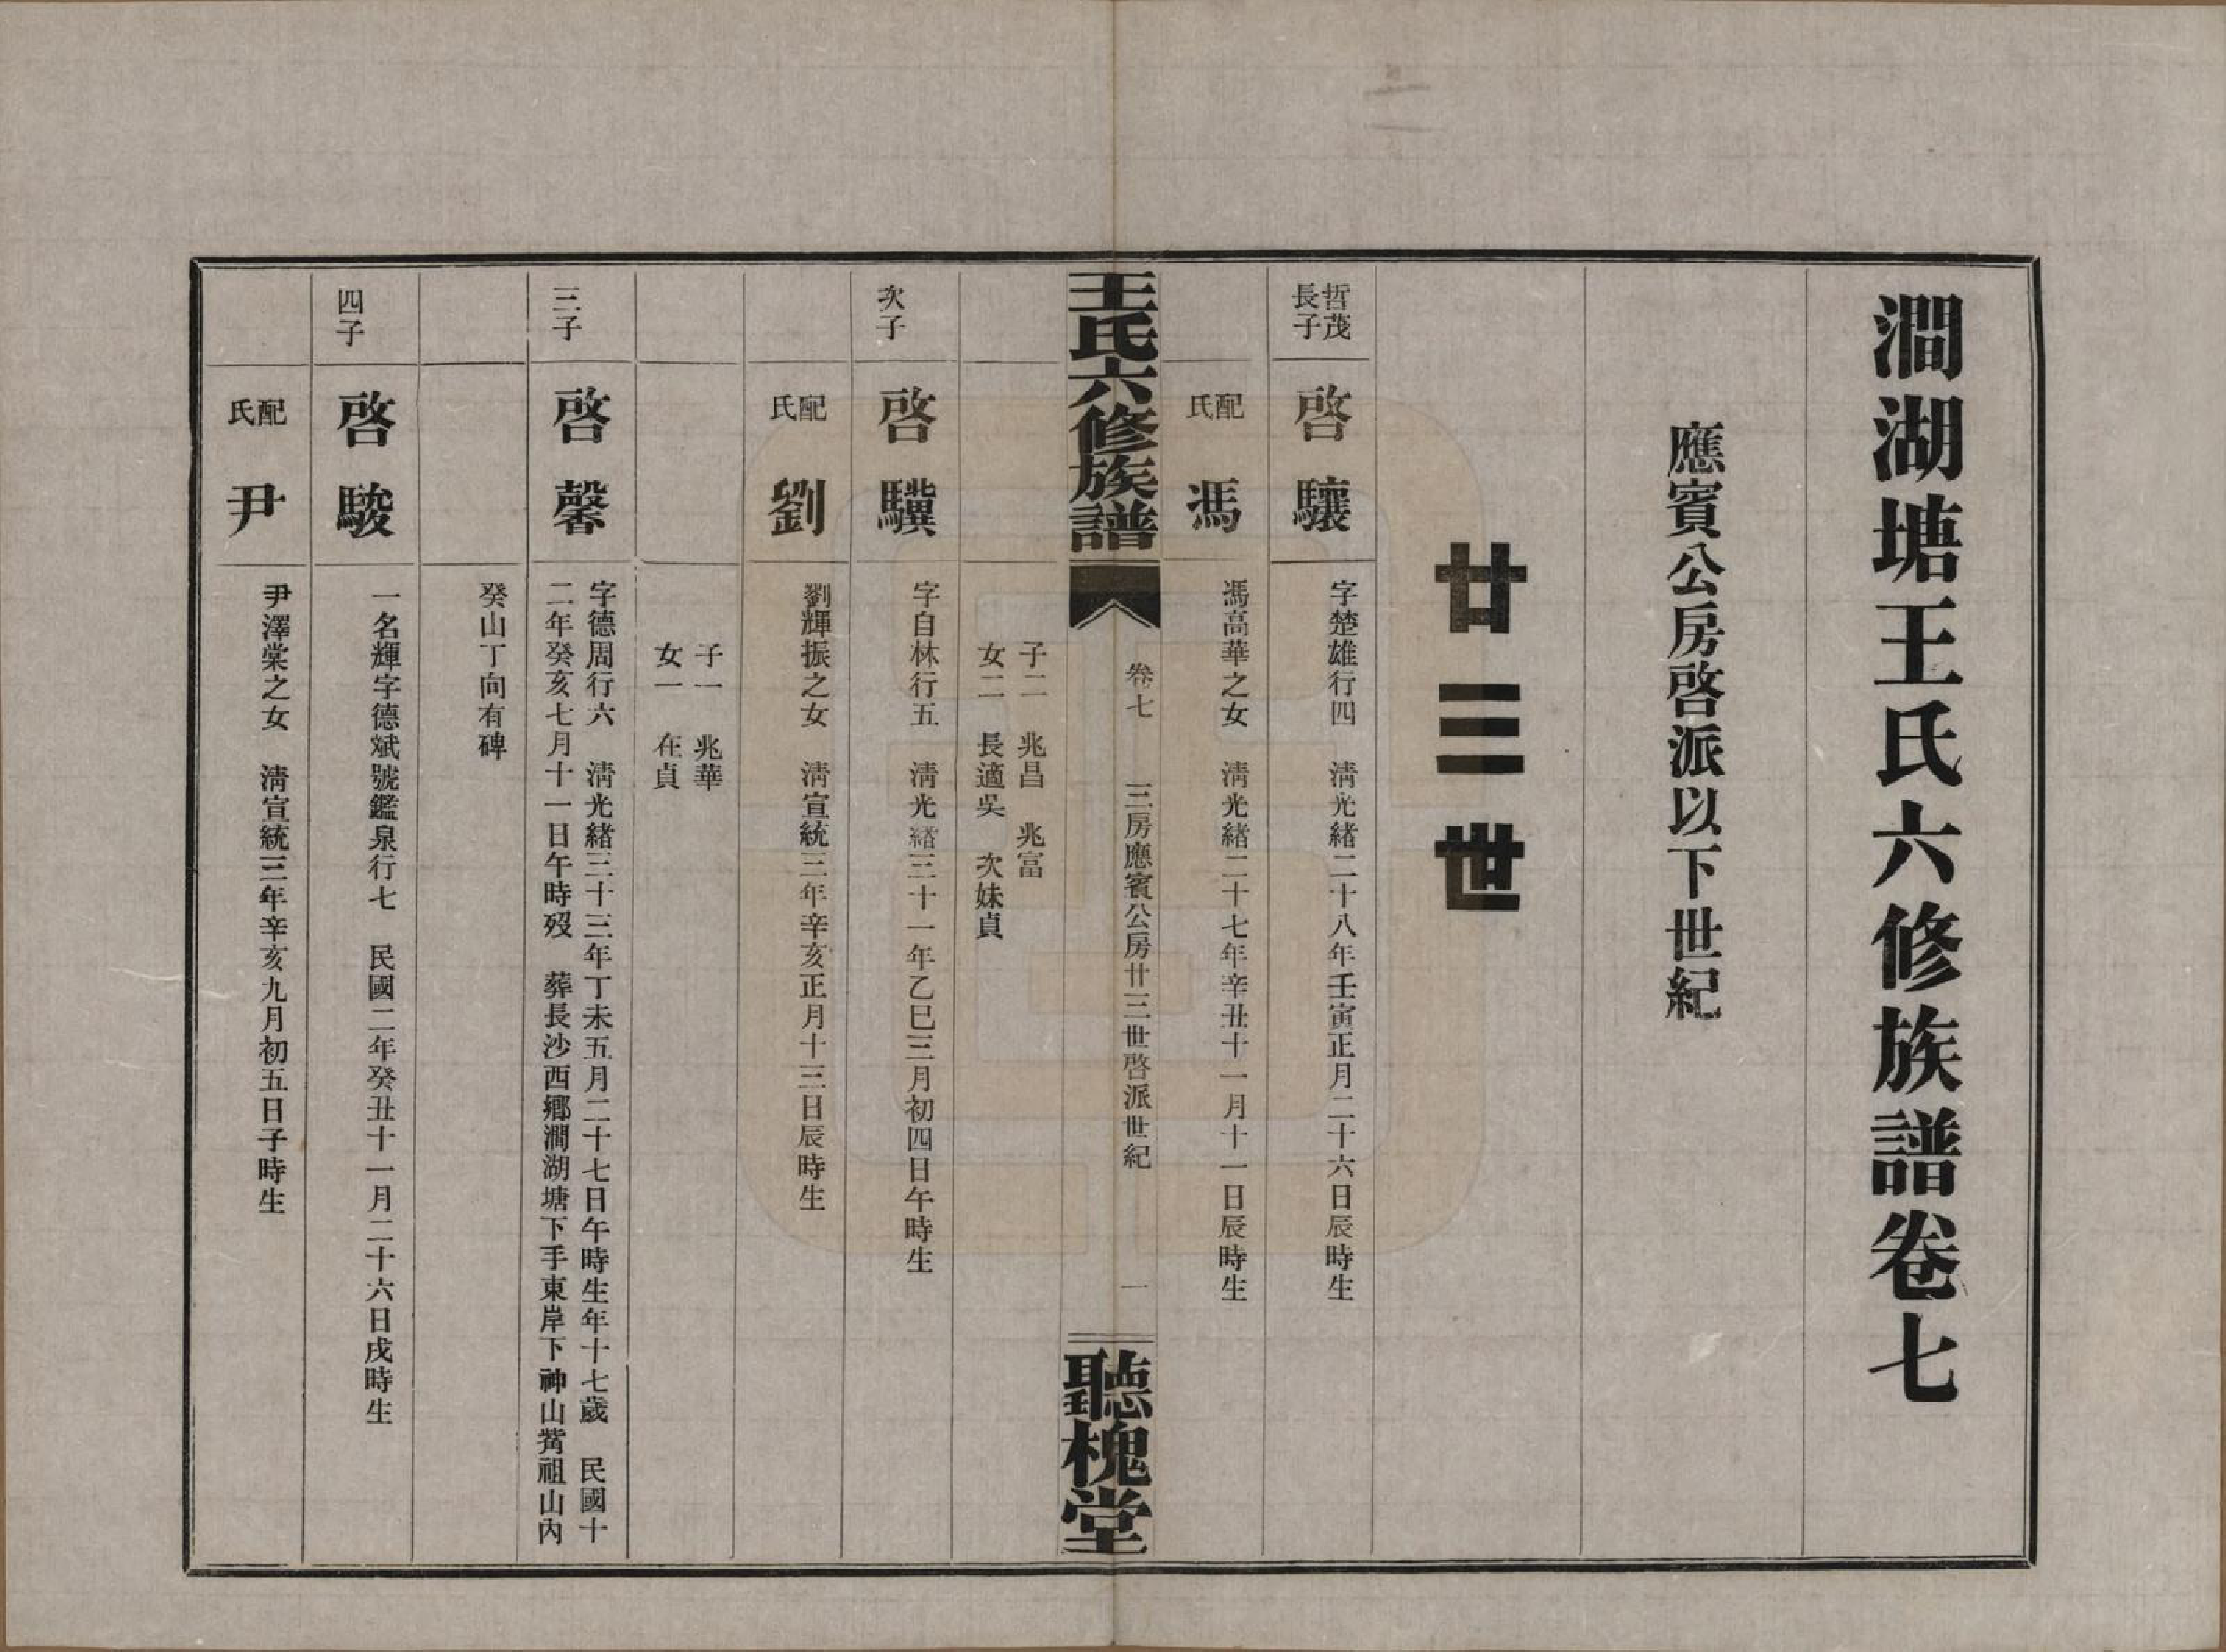 澗湖塘王氏六修族譜卷七
應賓公房啓派以下世紀
廿三世
哲茂
長子
啓驤
字楚雄行四　淸光緒二十八年壬寅正月二十六日辰時生
配
氏
馮
馮高華之女　淸光緒二十七年辛丑十一月十一日辰時生
王氏六修族譜
卷七　三房應賓公房廿三世啓派世紀　一
聽槐堂
子二　兆昌　兆富
女二　長適吳　次妹貞
次子
啓驥
字自林行五　淸光緒三十一年乙巳三月初四日午時生
配
氏
劉
劉輝振之女　淸宣統三年辛亥正月十三日辰時生
子一　兆華
女一　在貞
三子
啓馨
字德周行六　淸光緒三十三年丁未五月二十七日午時生年十七歲　民國十
二年癸亥七月十一日午時歿　葬長沙西鄕澗湖塘下手東岸下神山嘴祖山內
癸山丁向有碑
四子
啓駿
一名輝字德斌號鑑泉行七　民國二年癸丑十一月二十六日戌時生
配
氏
尹
尹澤棠之女　淸宣統三年辛亥九月初五日子時生